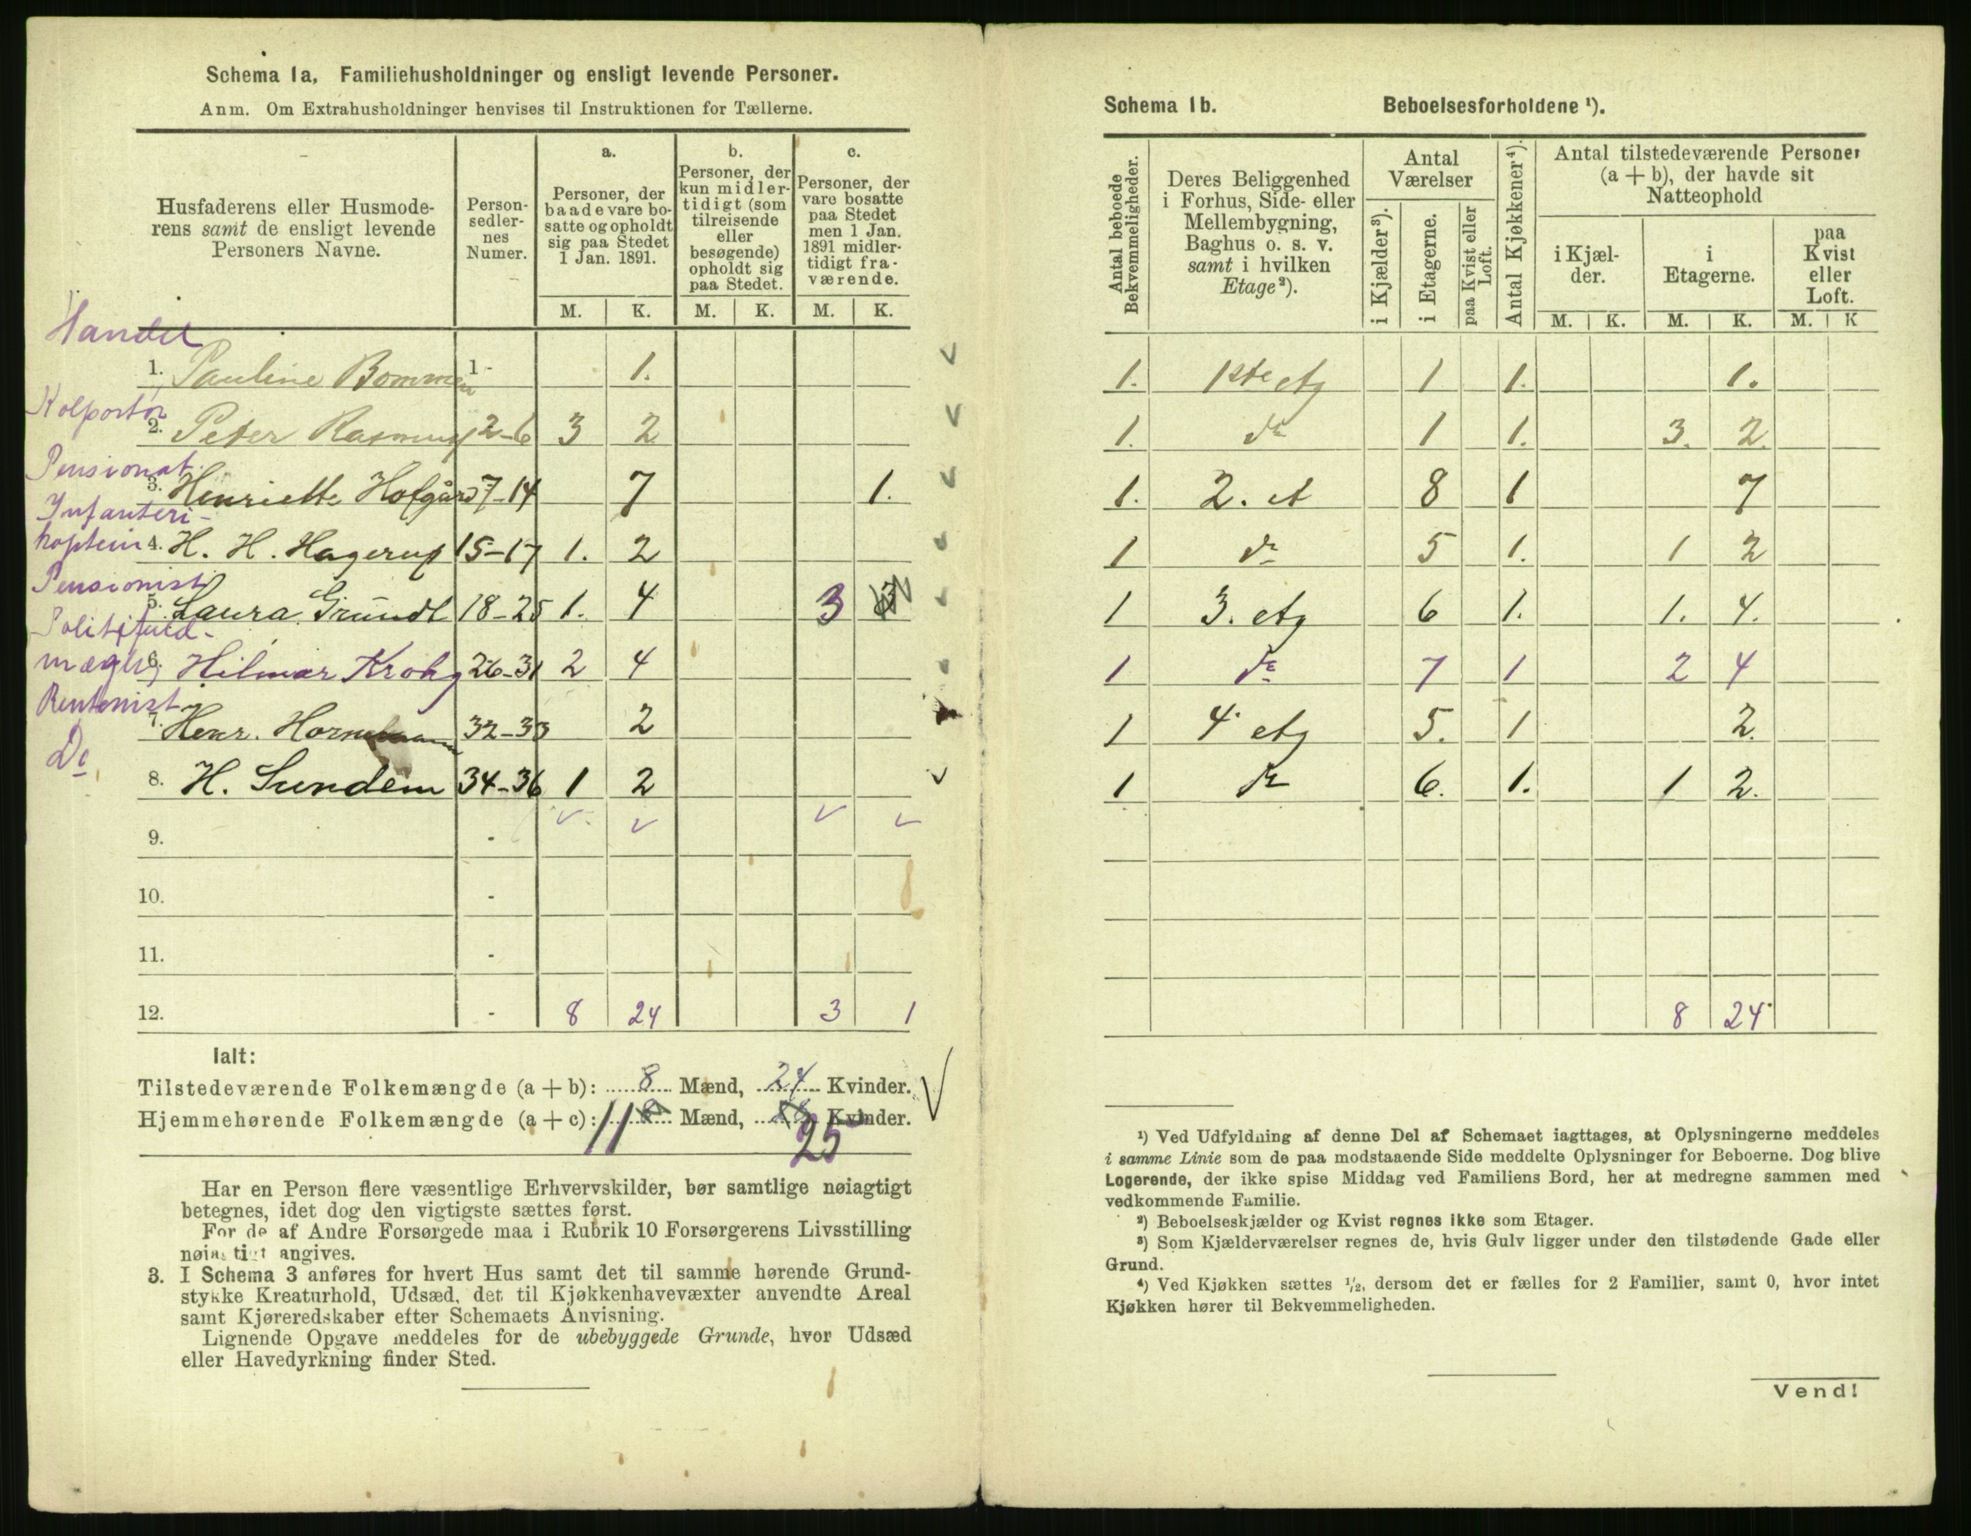 Schema 1a, Familiehusholdninger og ensligt levende Personer.
Anm. Om Extrahusholdninger henvises til Instruktionen for Tællerne.
Husfaderens eller Husmode-
rens samt de ensligt levende
Personers Navne.
Person-
sedler-
nes
Numer.
a.
Personer, der
baade vare bo-
satte og opholdt
sig paa Stedet
1 Jan. 1891.
b.
Personer, der
kun midler-
tidigt (som
tilreisende
eller
besøgende)
opholdt sig
paa Stedet.
c.
Personer, der
vare bosatte
paa Stedet
men 1 Jan.
1891 midler-
tidigt fra-
værende.
M. K. M. K. M. K.
Handel
1. Pauline Bommen 1 - 1.
Kolportør
2. Peter Rasmus 2-6 3 2
Pensionat
3. Henriette Hofgård 7-14 7 1.
Infanteri-
kaptein 4. H. H. Hagerup 15-17 1. 2
Pensionist
5. Laura Grundt 18-25 1. 4 3 3
Politifuld-
mægtig 6. Hilmar Krohg 26-31 2 4
Rentenist
7. Henr. Hornemann 32-33 2
Do
8. H. Sundem 34-36 1 2
9. -
10. -
11. -
12. - 8 24 3 1
Ialt:
Tilstedeværende Folkemængde (a + b): 8 Mænd, 24 Kvinder.
Hjemmehørende Folkemængde (a + c): 11 8 Mænd, 25 Kvinder.
Har en Person flere væsentlige Erhvervskilder, bør samtlige nøiagtigt
betegnes, idet dog den vigtigste sættes først.
For de af Andre Forsørgede maa i Rubrik 10 Forsørgerens Livsstilling
nøiagtigt angives.
3. I Schema 3 anføres for hvert Hus samt det til samme hørende Grund-
stykke Kreaturhold, Udsæd, det til Kjøkkenhavevæxter anvendte Areal
samt Kjøreredskaber efter Schemaets Anvisning.
Lignende Opgave meddeles for de ubebyggede Grunde, hvor Udsæd
eller Havedyrkning finder Sted.
Schema 1b. Beboelsesforholdene ¹).
Antal beboede
Bekvemmeligheder.
Deres Beliggenhed
i Forhus, Side- eller
Mellembygning,
Baghus o. s. v.
samt i hvilken
Etage²).
Antal
Værelser
i Kjælder³).
i Etagerne.
paa Kvist eller
Loft.
Antal Kjøkkener⁴).
Antal tilstedeværende Personer
(a + b), der havde sit
Natteophold
i Kjæl-
der.
i
Etagerne.
paa
Kvist
eller
Loft.
M. K. M. K. M. K
1. 1ste etg 1 1. 1.
1. do 1 1. 3. 2.
1. 2. et 8 1 7
1 do 5 1. 1 2
1 3. etg 6 1. 1. 4.
1 do 7 1 2 4
1 4. etg 5. 1 2.
1 do 6. 1. 1 2.
8 24
¹) Ved Udfyldning af denne Del af Schemaet iagttages, at Oplysningerne meddeles
i samme Linie som de paa modstaaende Side meddelte Oplysninger for Beboerne. Dog blive
Logerende, der ikke spise Middag ved Familiens Bord, her at medregne sammen med
vedkommende Familie.
²) Beboelseskjælder og Kvist regnes ikke som Etager.
³) Som Kjælderværelser regnes de, hvis Gulv ligger under den tilstødende Gade eller
Grund.
⁴) Ved Kjøkken sættes ½, dersom det er fælles for 2 Familier, samt 0, hvor intet
Kjøkken hører til Bekvemmeligheden.
Vend!